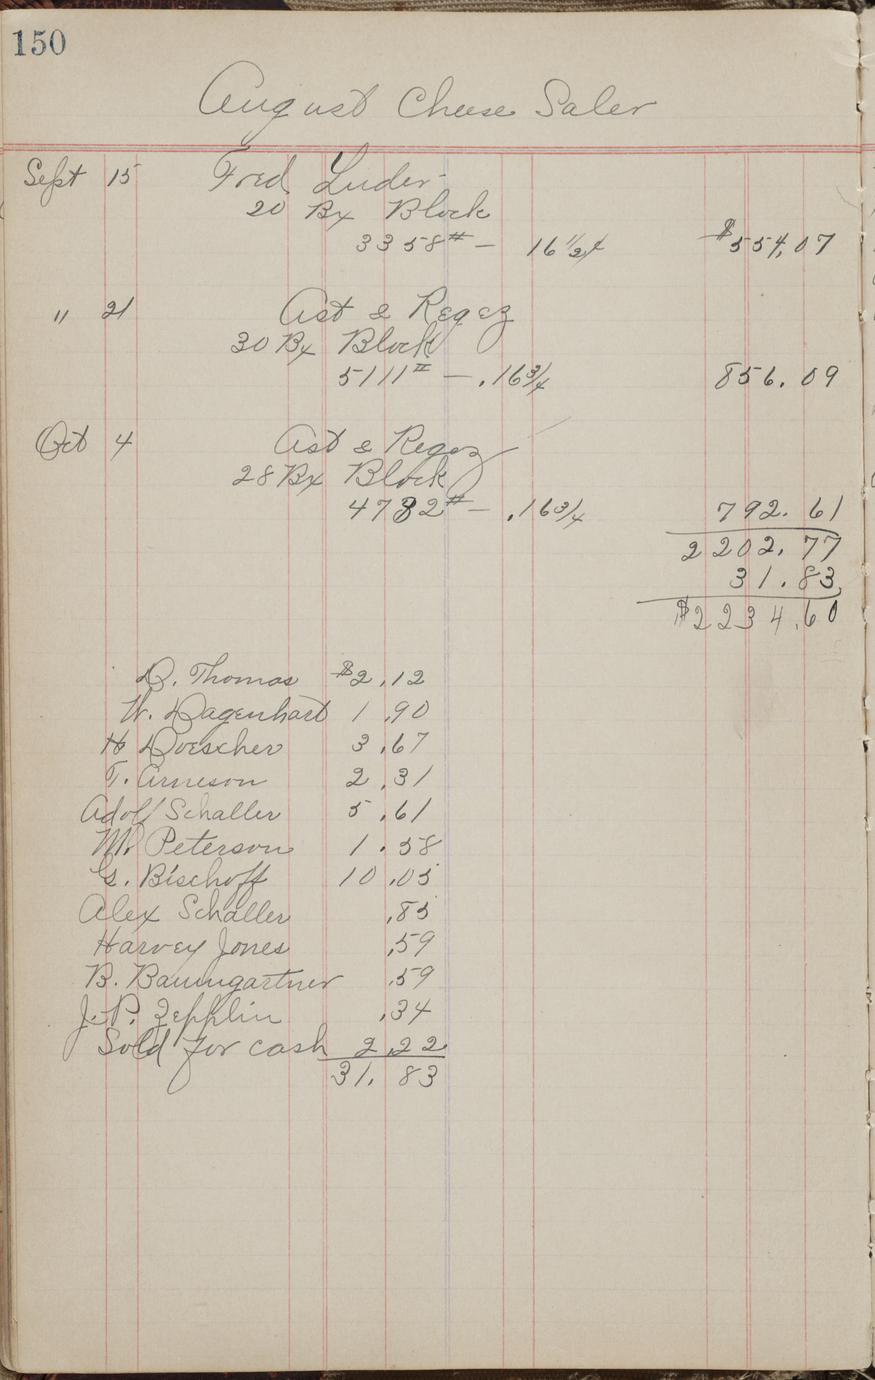 150
August Cheese Sales
Sept 15 Fred Luder
20 Bx Block
3358# — 16 1/2¢ $554.07
" 21 Ast & Regez
30 Bx Block
5111# — .16 3/4 856.09
Oct 4 Ast & Regez
28 Bx Block
4732# — .16 3/4 792.61
2202.77
31.83
$2234.60
D. Thomas $2.12
W. Dagenhart 1.90
H Doescher 3.67
T. Arneson 2.31
Adolf Schaller 5.61
Mr Peterson 1.58
G. Bischoff 10.05
Alex Schaller .85
Harvey Jones .59
B. Baumgartner .59
J.P. Zephlin .34
Sold for cash 2.22
31.83